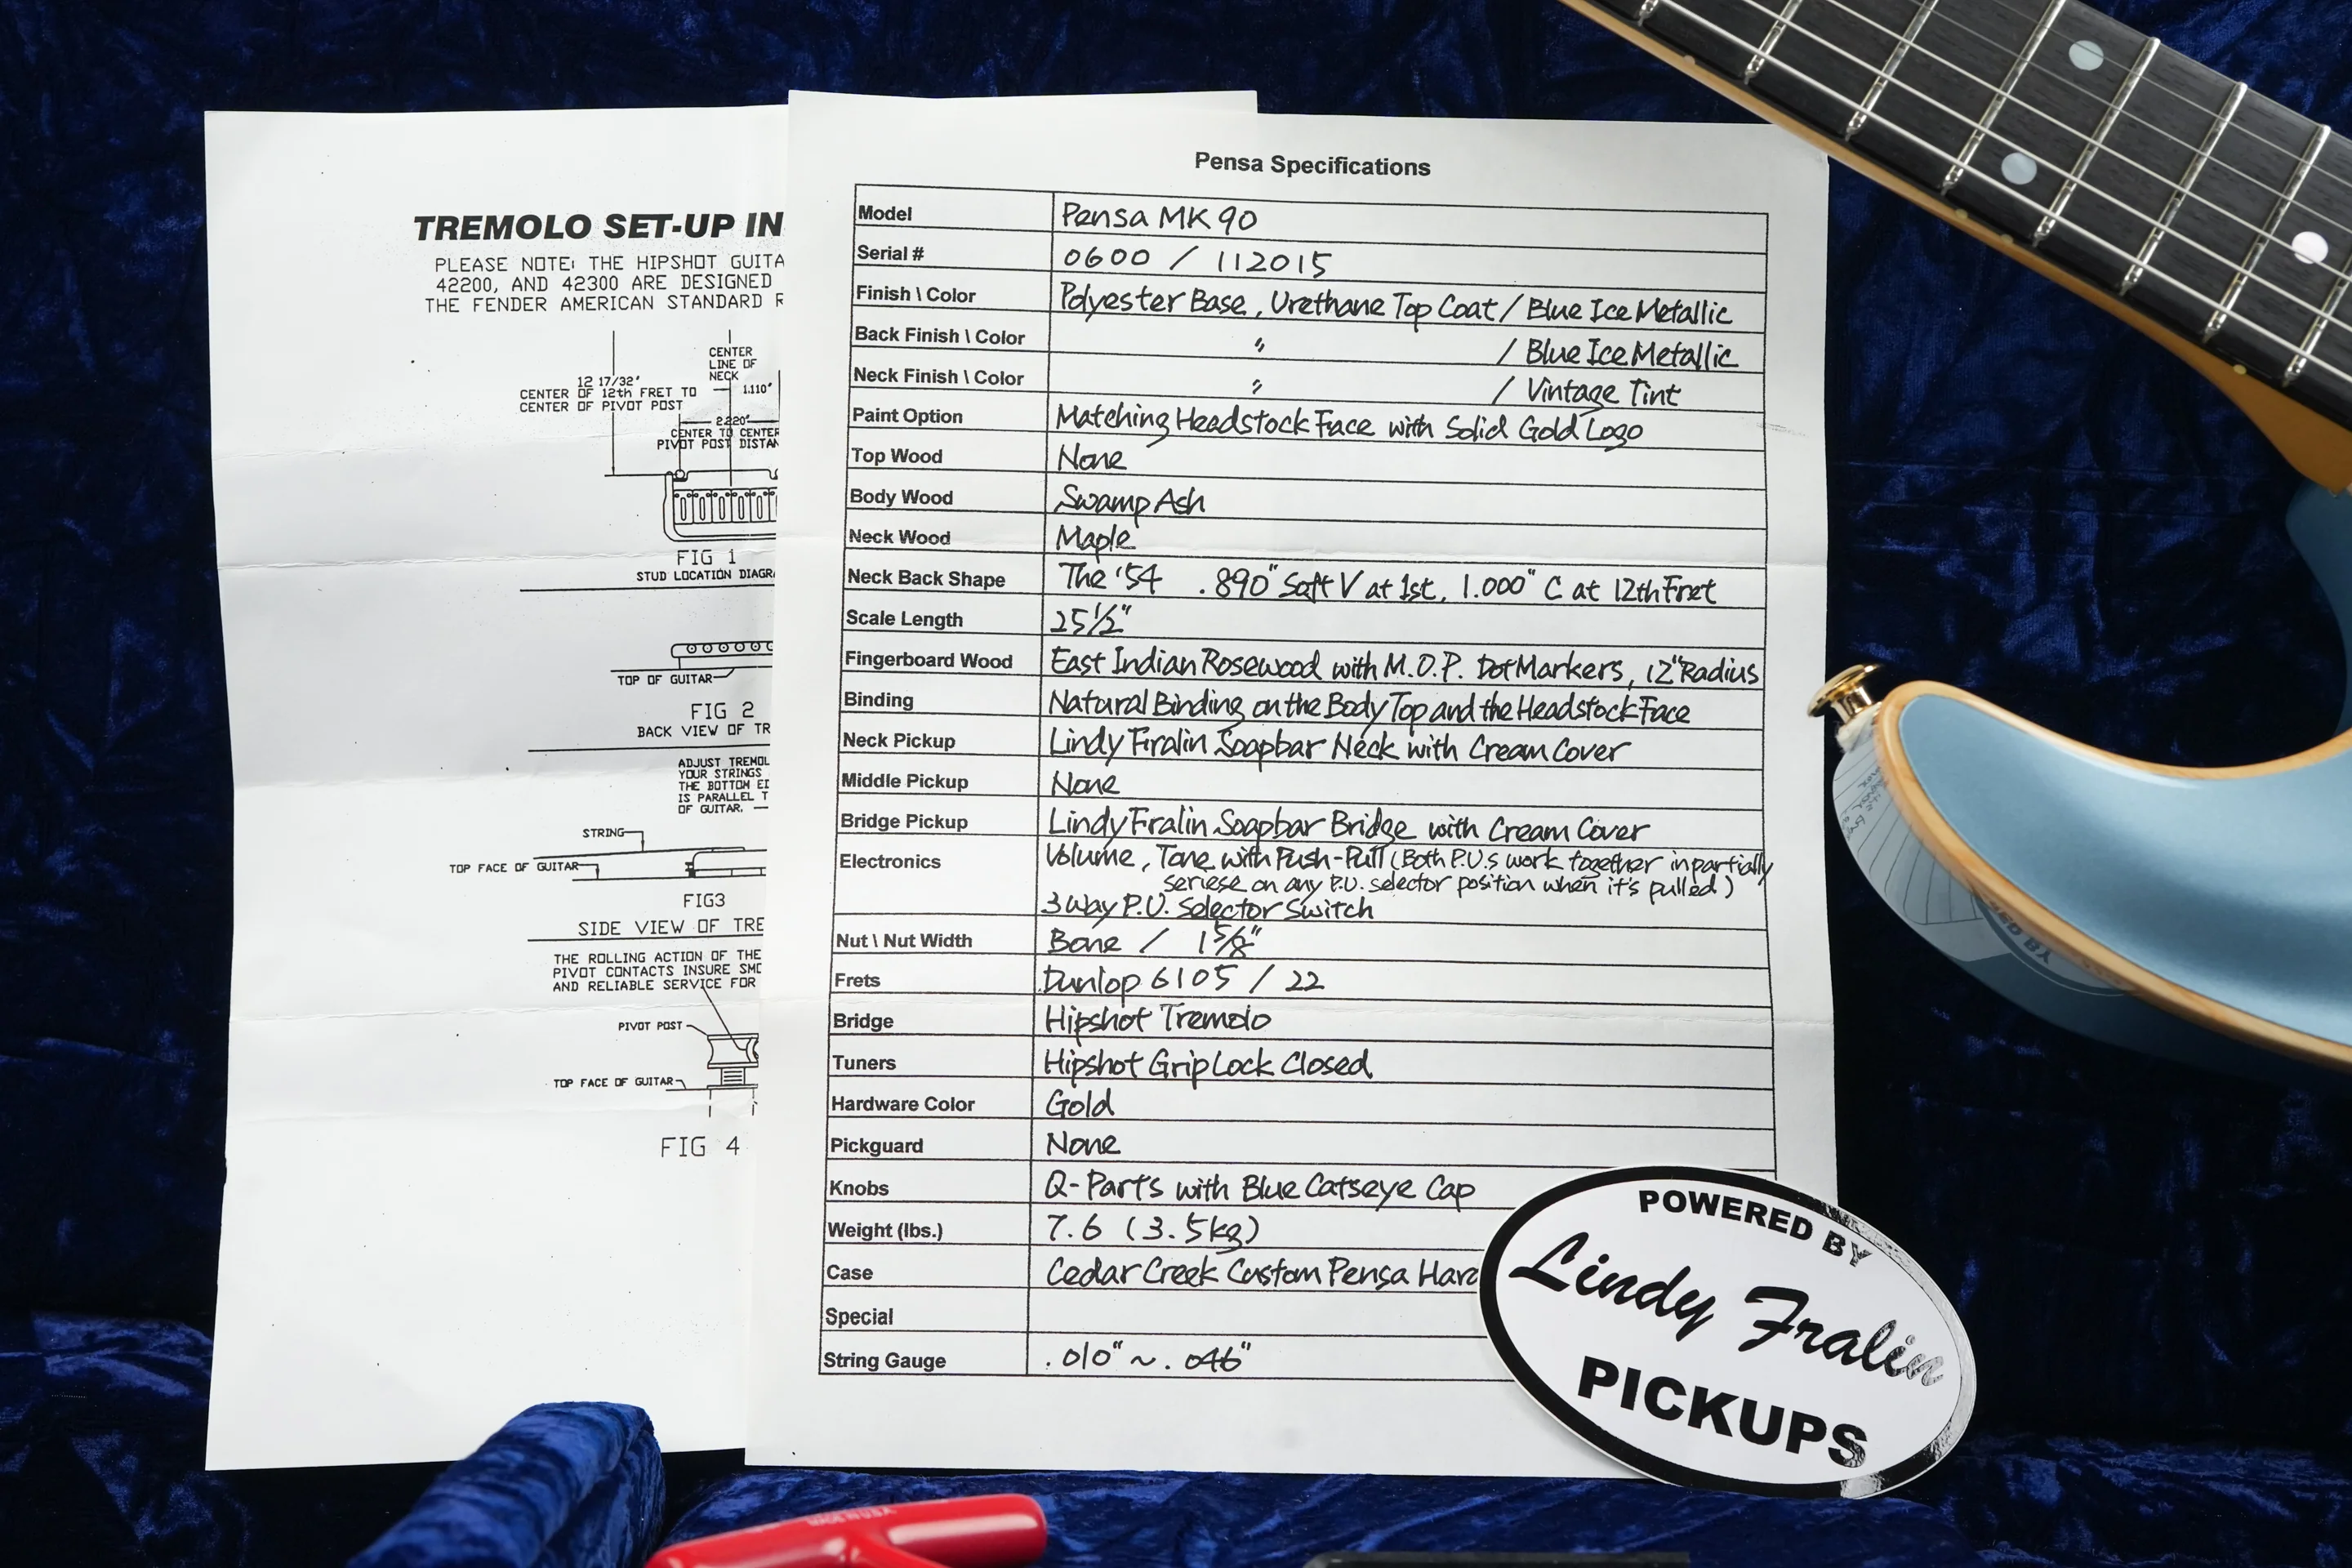 TREMOLO SET-UP IN
PLEASE NOTE: THE HIPSHOT GUITA
42200, AND 42300 ARE DESIGNED
THE FENDER AMERICAN STANDARD R
CENTER
LINE OF
NECK
12 17/32"
CENTER OF 12th FRET TO
CENTER OF PIVOT POST
1.110"
2.220"
CENTER TO CENTER
PIVOT POST DISTAN
FIG 1
STUD LOCATION DIAGRA
TOP OF GUITAR
FIG 2
BACK VIEW OF TR
ADJUST TREMOL
YOUR STRINGS
THE BOTTOM ED
IS PARALLEL T
OF GUITAR.
STRING
TOP FACE OF GUITAR
FIG3
SIDE VIEW OF TRE
THE ROLLING ACTION OF THE
PIVOT CONTACTS INSURE SMO
AND RELIABLE SERVICE FOR
PIVOT POST
TOP FACE OF GUITAR
FIG 4
Pensa Specifications
Model Pensa MK 90
Serial # 0600 / 112015
Finish \ Color Polyester Base, Urethane Top Coat / Blue Ice Metallic
Back Finish \ Color 〃 / Blue Ice Metallic
Neck Finish \ Color 〃 / Vintage Tint
Paint Option Matching Headstock Face with Solid Gold Logo
Top Wood None
Body Wood Swamp Ash
Neck Wood Maple
Neck Back Shape The '54 .890" Soft V at 1st, 1.000" C at 12th Fret
Scale Length 25 1/2"
Fingerboard Wood East Indian Rosewood with M.O.P. Dot Markers, 12" Radius
Binding Natural Binding on the Body Top and the Headstock Face
Neck Pickup Lindy Firalin Soapbar Neck with Cream Cover
Middle Pickup None
Bridge Pickup Lindy Fralin Soapbar Bridge with Cream Cover
Electronics Volume, Tone with Push-Pull (Both P.U.s work together in partially
seriese on any P.U. selector position when it's pulled)
3 Way P.U. Selector Switch
Nut \ Nut Width Bone / 1 5/8"
Frets Dunlop 6105 / 22
Bridge Hipshot Tremolo
Tuners Hipshot Grip Lock Closed
Hardware Color Gold
Pickguard None
Knobs Q-Parts with Blue Catseye Cap
Weight (lbs.) 7.6 (3.5kg)
Case Cedar Creek Custom Pensa Hard
Special
String Gauge .010" ~ .046"
POWERED BY
Lindy Fralin
PICKUPS